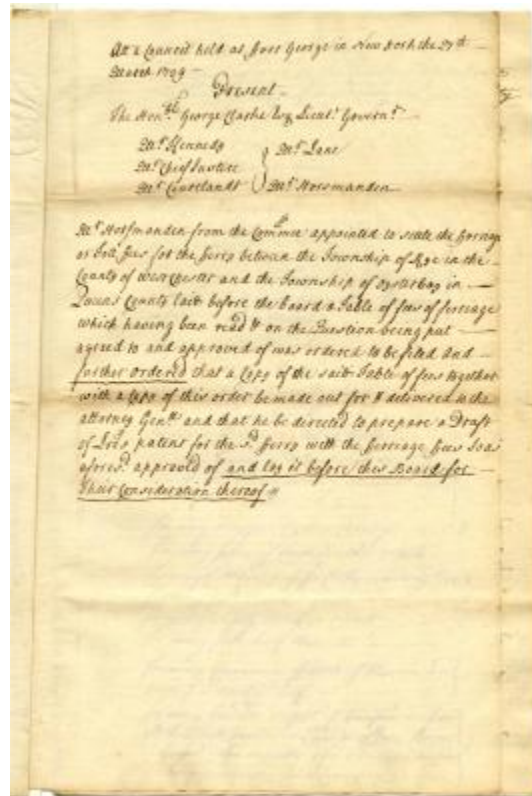 Att a Council held at Fort George in New York the 27th
March 1739
Present
The Honble George Clarke Esq Lieut Governr
Mr Kennedy Mr Lane
Mr Chief Justice
Mr Courtlandt Mr Horsmanden
Mr Horsmanden from the Commee appointed to settle the ferriage
or Toll fees for the ferry between the Township of Rye in the
County of Westchester and the Township of Oysterbay in
Queens County laid before the board a Table of fees of ferriage
which having been read & on the Question being put
agreed to and approved of was ordered to be filed And
further Ordered that a Copy of the said Table of fees together
with a Copy of this order be made out for & delivered to the
attorney Genll and that he be directed to prepare a Draft
of patent for the sd ferry with the ferriage fees
aforesd approved of and lay it before this Board for
their Consideration thereof